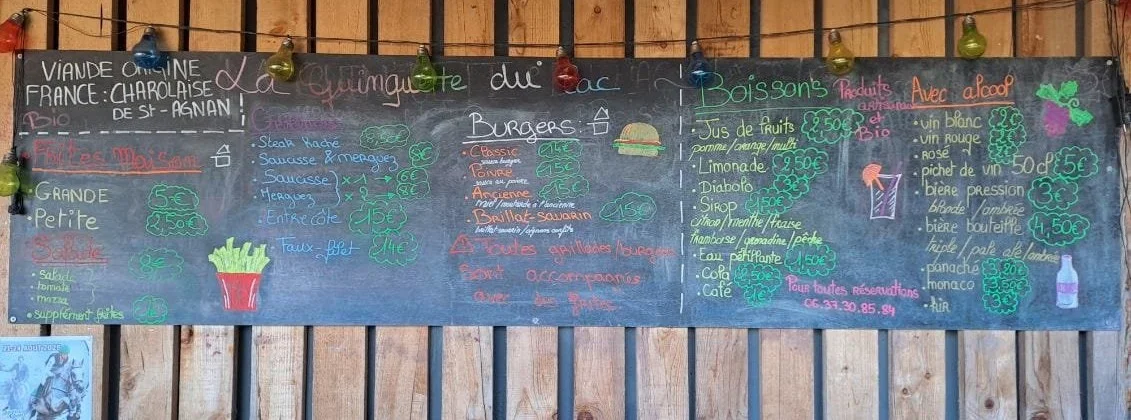 VIANDE ORIGINE
FRANCE: CHAROLAISE
DE St-AGNAN !
Bio
La Guinguette du Lac
Frites Maison
GRANDE 5€
Petite 2,50€
Salade 8€
• salade
• tomate
• mozza
• supplément frites
Steak Haché
Saucisse & merguez 8€
• Saucisse } x 1 → 6€
Merguez } x 2 → 8€
• Entrecôte 15€
• Faux-filet 14€
Burgers:
• Classic 14€
sauce burger
• Poivre 15€
sauce au poivre
• Ancienne 15€
miel/moutarde à l'ancienne
• Brillat-savarin 15€
brillat-savarin/oignons confits
⚠ Toutes grillades/burgers
Sont accompagnés
avec des frites.
Boissons
Produits
artisanaux
et
Bio
• Jus de fruits 2,50€
pomme/orange/multi
• Limonade 2,50€
• Diabolo 3€
• Sirop 1,50€
citron/menthe/fraise
framboise/grenadine/pêche
• Eau pétillante 1,50€
• Cola 2,50€
• Café
Pour toutes réservations
06.37.30.85.84
Avec alcool
• vin blanc 2€
• vin rouge
• rosé
• pichet de vin 50 cl 5€
• bière pression 3€
blonde/ambrée
• bière bouteille 4,50€
triple/pale ale/ambrée
• panaché
• monaco
• Kir